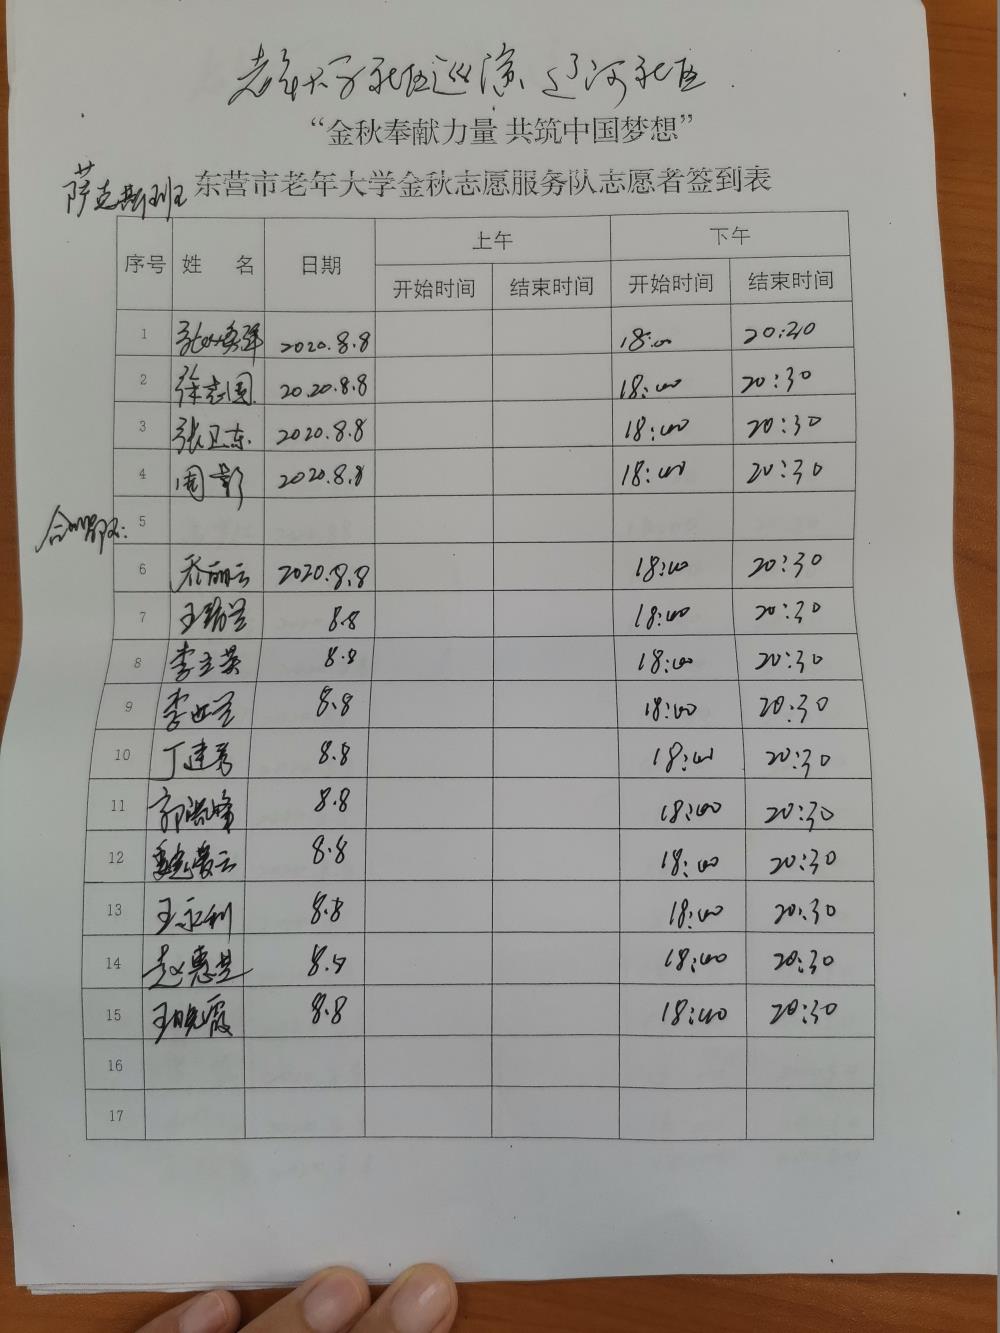 老年大学社区巡演 辽河社区
“金秋奉献力量 共筑中国梦想”
萨克斯班 东营市老年大学金秋志愿服务队志愿者签到表
序号 姓 名 日期 上午 下午
开始时间 结束时间 开始时间 结束时间
1 2020.8.8 18:00 20:30
2 徐志国 2020.8.8 18:00 20:30
3 张卫东 2020.8.8 18:00 20:30
4 周影 2020.8.8 18:00 20:30
合唱队: 5
6 乔丽云 2020.8.8 18:00 20:30
7 王瑞兰 8.8 18:00 20:30
8 李立英 8.8 18:00 20:30
9 李 兰 8.8 18:00 20:30
10 丁建秀 8.8 18:00 20:30
11 郭 峰 8.8 18:00 20:30
12 云 8.8 18:00 20:30
13 王永利 8.8 18:00 20:30
14 赵惠芝 8.8 18:00 20:30
15 王晓霞 8.8 18:00 20:30
16
17